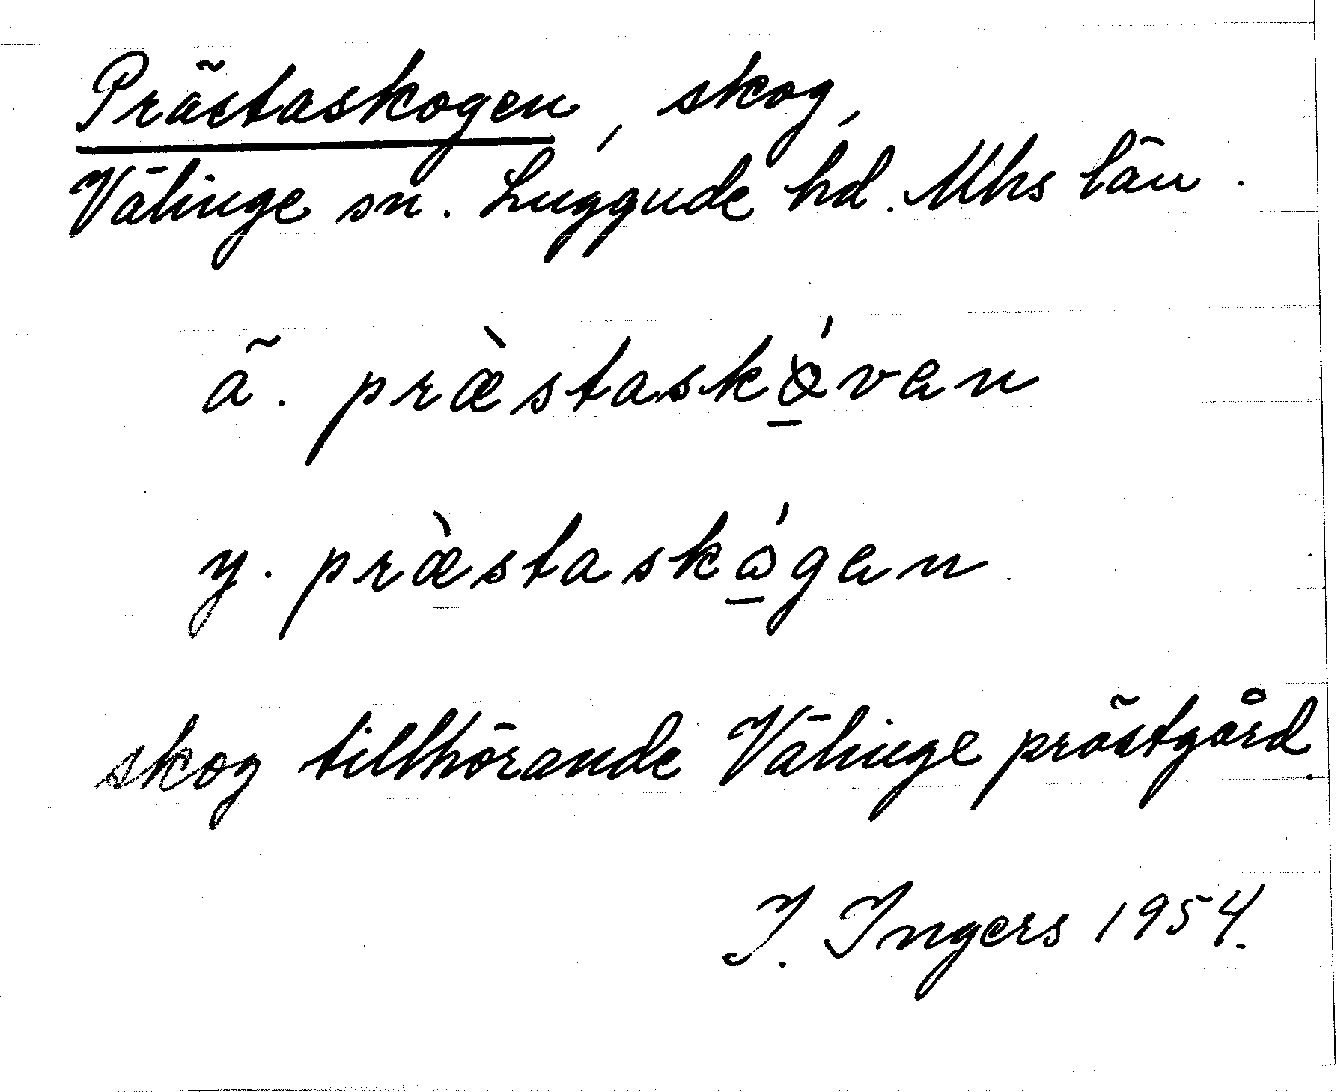 Prästaskogen, skog,
Välinge sn. Luggude hd. Mhs län.
ä. præ̀staskǫ́van
y. præ̀staskǫ́gan
skog tillhörande Välinge prästgård.
I. Ingers 1954.